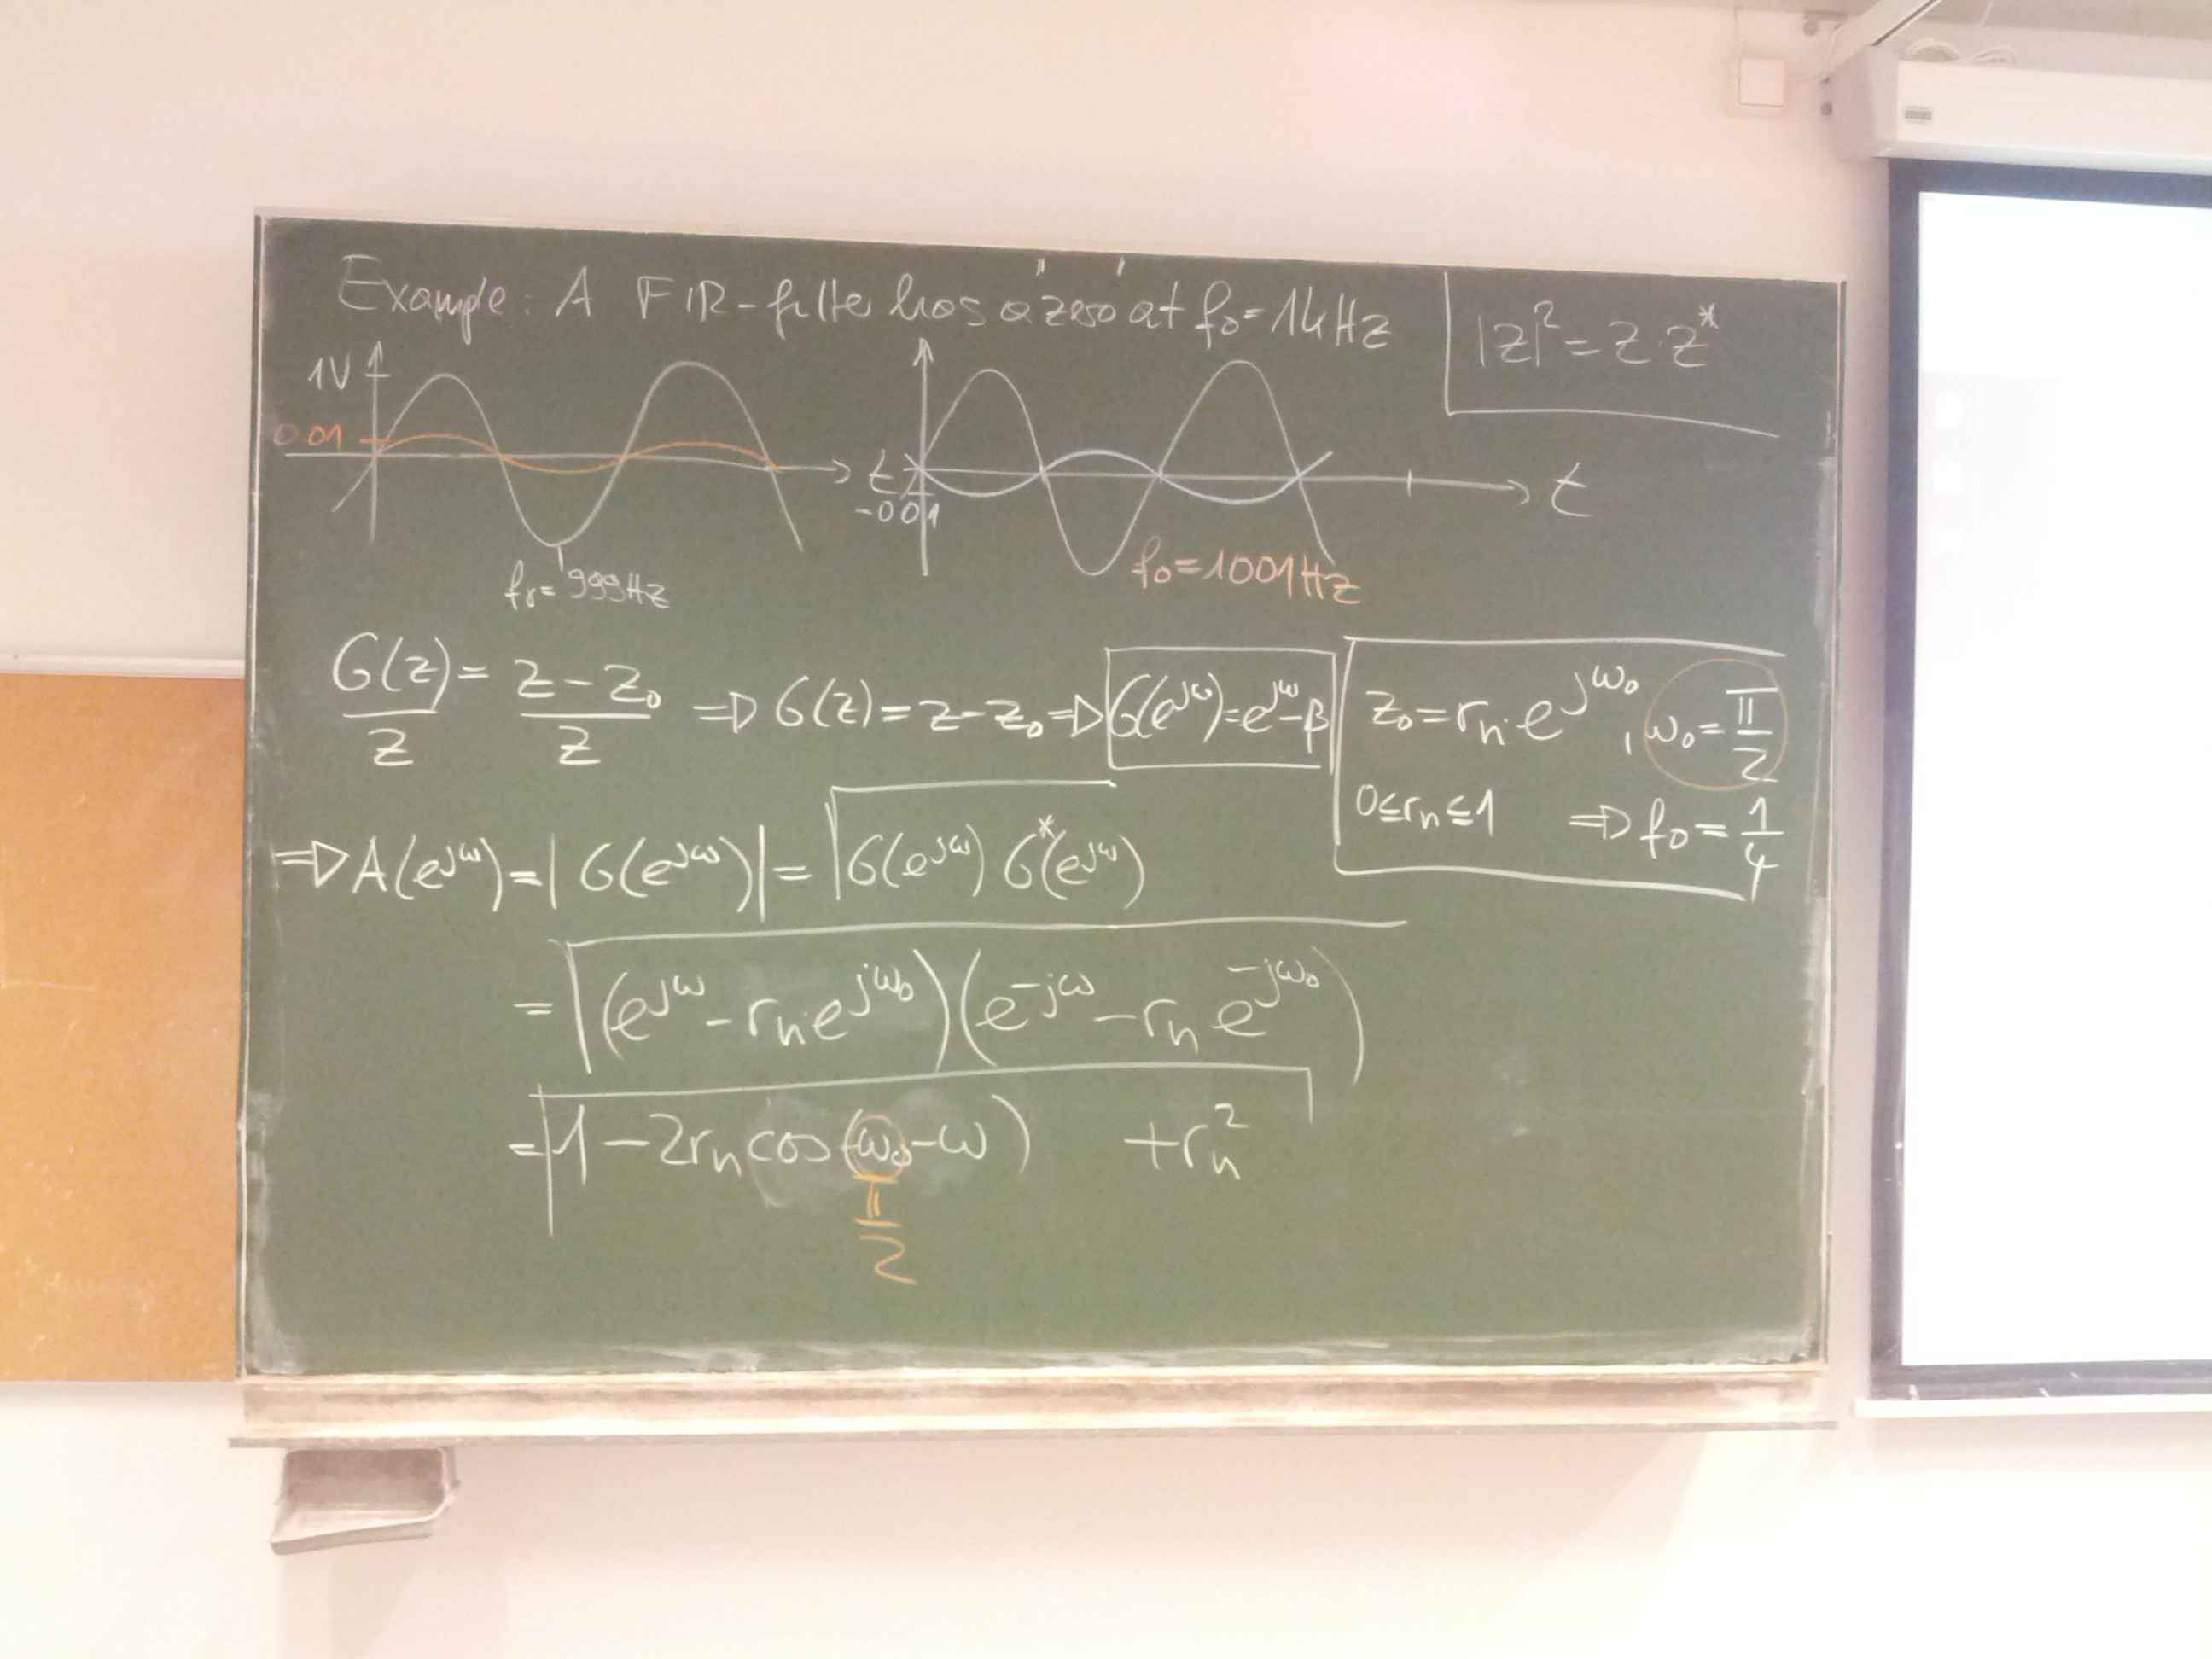 Example: A FIR-filter has a "zero" at f₀=1kHz
|z|² = z·z*
1V
0.01
t
-0.01
t
fr = 999Hz
f₀=1001Hz
G(z)/z = (z-z₀)/z ⇒ G(z) = z-z₀ ⇒ G(e^jω)=e^jω-β
z₀=rₙ·e^jω₀, ω₀=π/2
0≤rₙ≤1 ⇒ f₀=1/4
⇒ A(e^jω) = |G(e^jω)| = √(G(e^jω) G*(e^jω))
= √((e^jω - rₙe^jω₀)(e^-jω - rₙe^-jω₀))
= √(1-2rₙcos(ω₀-ω) +rₙ²)
π/2